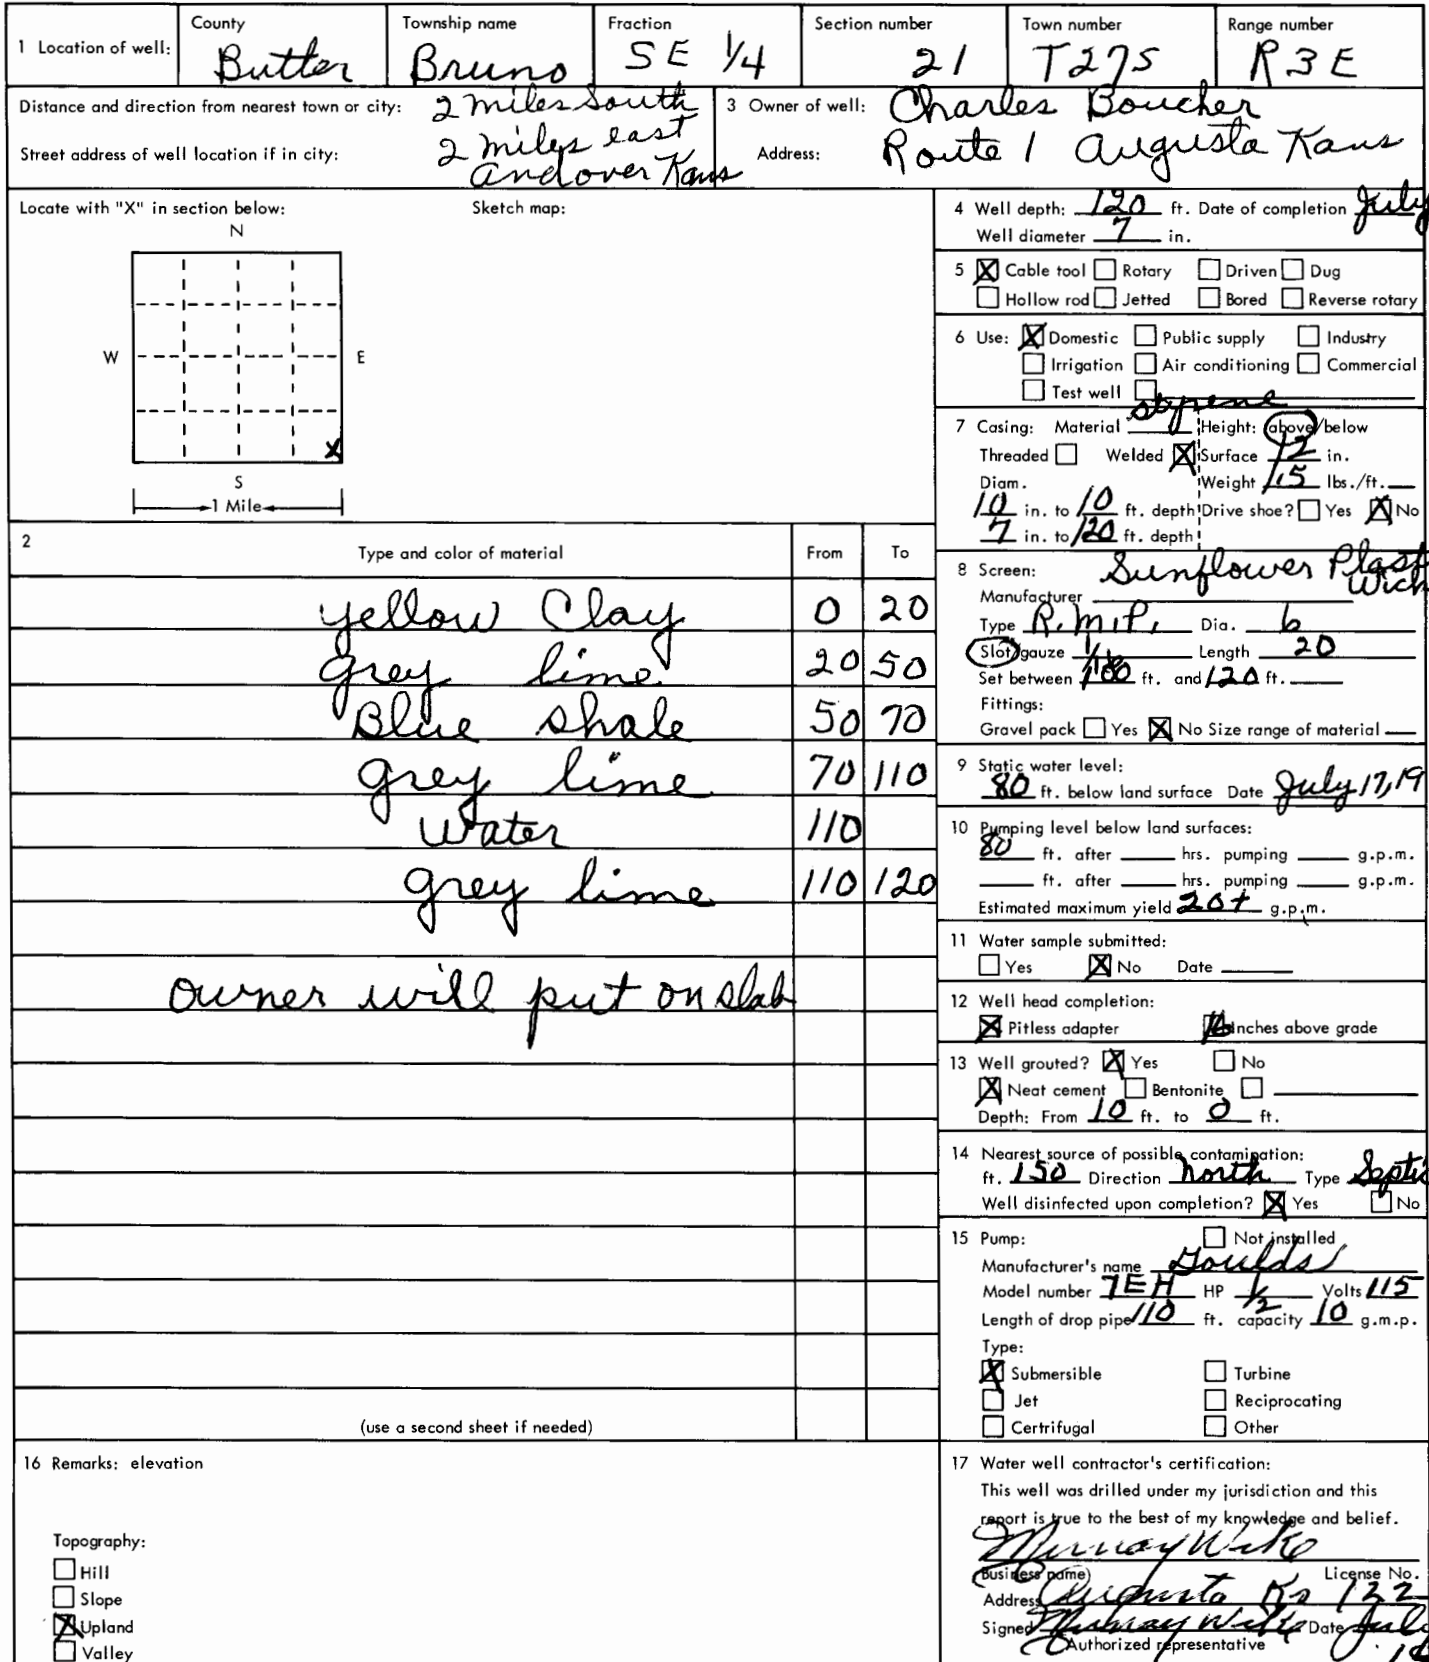 1 Location of well: County Butler Township name Bruno Fraction SE 1/4 Section number 21 Town number T27S Range number R3E
Distance and direction from nearest town or city: 2 miles South
2 miles east
Street address of well location if in city: Andover Kans
3 Owner of well: Charles Boucher
Address: Route 1 Augusta Kans
Locate with "X" in section below: Sketch map:
N
W E
X
S
1 Mile
2 Type and color of material From To
yellow Clay 0 20
grey lime 20 50
Blue shale 50 70
grey lime 70 110
Water 110
grey lime 110 120
owner will put on slab
(use a second sheet if needed)
4 Well depth: 120 ft. Date of completion July
Well diameter 7 in.
5 X Cable tool Rotary Driven Dug
Hollow rod Jetted Bored Reverse rotary
6 Use: X Domestic Public supply Industry
Irrigation Air conditioning Commercial
Test well
7 Casing: Material styrene Height: above/below
Threaded Welded X Surface 12 in.
Diam. Weight 1.5 lbs./ft.
10 in. to 10 ft. depth Drive shoe? Yes X No
7 in. to 120 ft. depth
8 Screen: Sunflower Plast
Wich
Manufacturer
Type R.M.P. Dia. 6
Slot/gauze Length 20
Set between 100 ft. and 120 ft.
Fittings:
Gravel pack Yes X No Size range of material
9 Static water level:
80 ft. below land surface Date July 17, 19
10 Pumping level below land surfaces:
80 ft. after hrs. pumping g.p.m.
ft. after hrs. pumping g.p.m.
Estimated maximum yield 20+ g.p.m.
11 Water sample submitted:
Yes X No Date
12 Well head completion:
X Pitless adapter Inches above grade
13 Well grouted? X Yes No
X Neat cement Bentonite
Depth: From 10 ft. to 0 ft.
14 Nearest source of possible contamination:
ft. 150 Direction north Type Septi
Well disinfected upon completion? X Yes No
15 Pump: Not installed
Manufacturer's name Goulds
Model number 7EH HP 1/2 Volts 115
Length of drop pipe 110 ft. capacity 10 g.m.p.
Type:
X Submersible Turbine
Jet Reciprocating
Certrifugal Other
16 Remarks: elevation
Topography:
Hill
Slope
X Upland
Valley
17 Water well contractor's certification:
This well was drilled under my jurisdiction and this
report is true to the best of my knowledge and belief.
Murray Wike
Business name) License No.
Address Augusta Ks 122
Signed Murray Wike Date July
Authorized representative